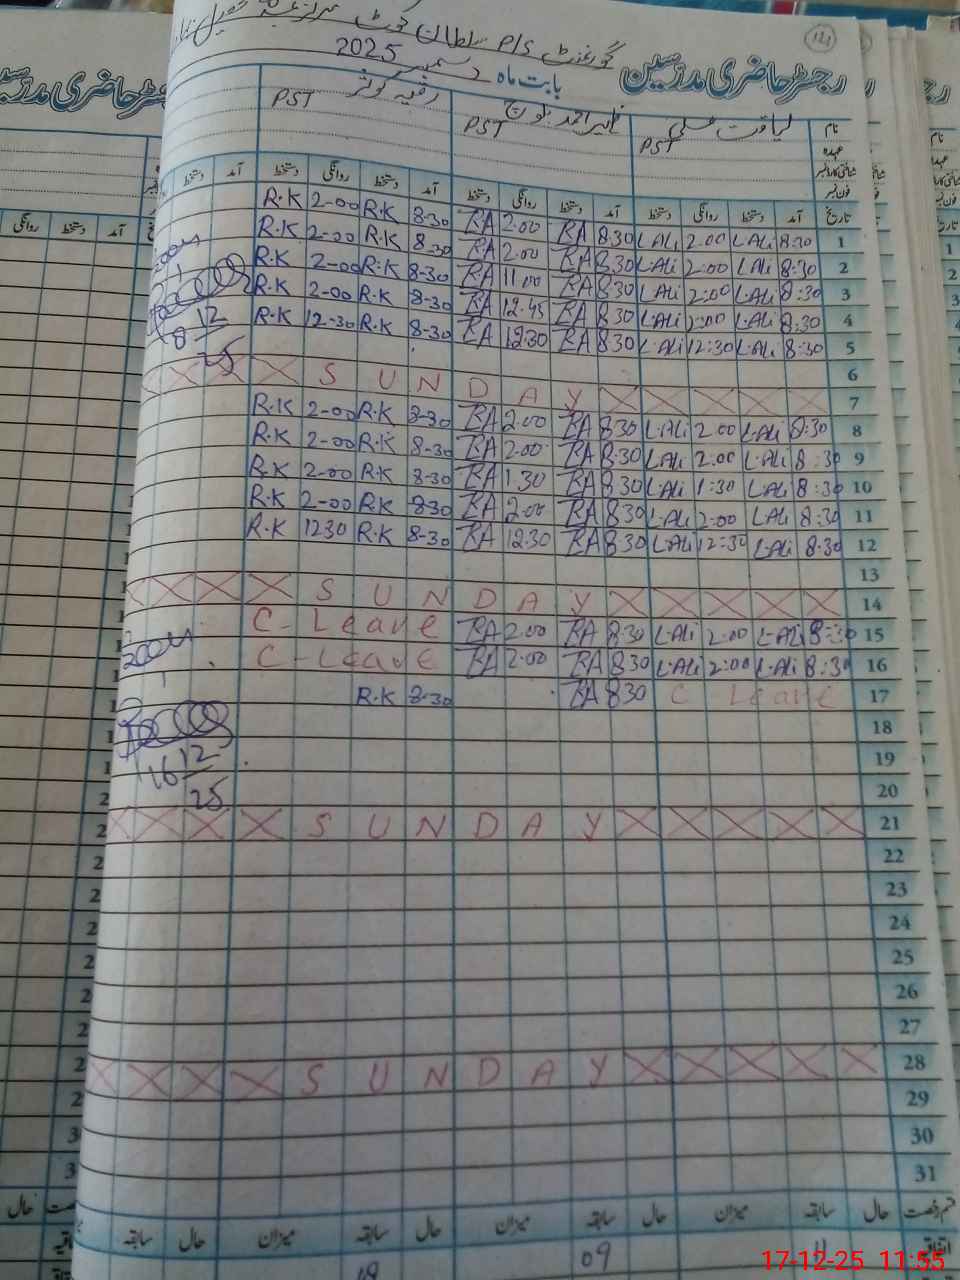 121
گورنمنٹ P/S سلطان کوٹ
رجسٹر حاضری مدرسین
بابت ماہ دسمبر 2025
نام لیاقت علی ظہیر احمد رفیہ کوثر
عہدہ PST PST PST
شناختی کارڈ نمبر
فون نمبر
تاریخ آمد دستخط روانگی دستخط آمد دستخط روانگی دستخط آمد دستخط روانگی دستخط آمد دستخط
1 8:30 L.Ali 2.00 L.Ali 8.30 BA 2.00 BA 8-30 R.K 2-00 R.K
2 8:30 L.Ali 2:00 L.Ali 8.30 BA 2.00 BA 8-30 R.K 2-00 R.K
3 8:30 L.Ali 2:00 L.Ali 8.30 BA 11.00 BA 8-30 R.K 2-00 R.K
4 8:30 L.Ali 2:00 L.Ali 8.30 BA 12.45 BA 8-30 R.K 2-00 R.K
5 8:30 L.Ali 12:30 L.Ali 8.30 BA 12.30 BA 8-30 R.K 12-30 R.K
8 12/25
6
7 SUNDAY
8 8:30 L.Ali 2.00 L.Ali 8.30 BA 2.00 BA 8-30 R.K 2-00 R.K
9 8:30 L.Ali 2.00 L.Ali 8.30 BA 2.00 BA 8-30 R.K 2-00 R.K
10 8:30 L.Ali 1:30 L.Ali 8.30 BA 1.30 BA 8-30 R.K 2-00 R.K
11 8:30 L.Ali 2:00 L.Ali 8.30 BA 2.00 BA 8-30 R.K 2-00 R.K
12 8:30 L.Ali 12:30 L.Ali 8.30 BA 12.30 BA 8-30 R.K 1230 R.K
13
14 SUNDAY
15 8:30 L.Ali 2:00 L.Ali 8.30 BA 2.00 BA C-Leave
16 8:30 L.Ali 2:00 L.Ali 8.30 BA 2.00 BA C-Leave
17 C Leave 8.30 BA 8-30 R.K
16 12/25
18
19
20
21 SUNDAY
22
23
24
25
26
27
28 SUNDAY
29
30
31
قسم رخصت حال سابقہ میزان حال سابقہ میزان حال سابقہ میزان حال سابقہ
اتفاقیہ 09
17-12-25 11:55